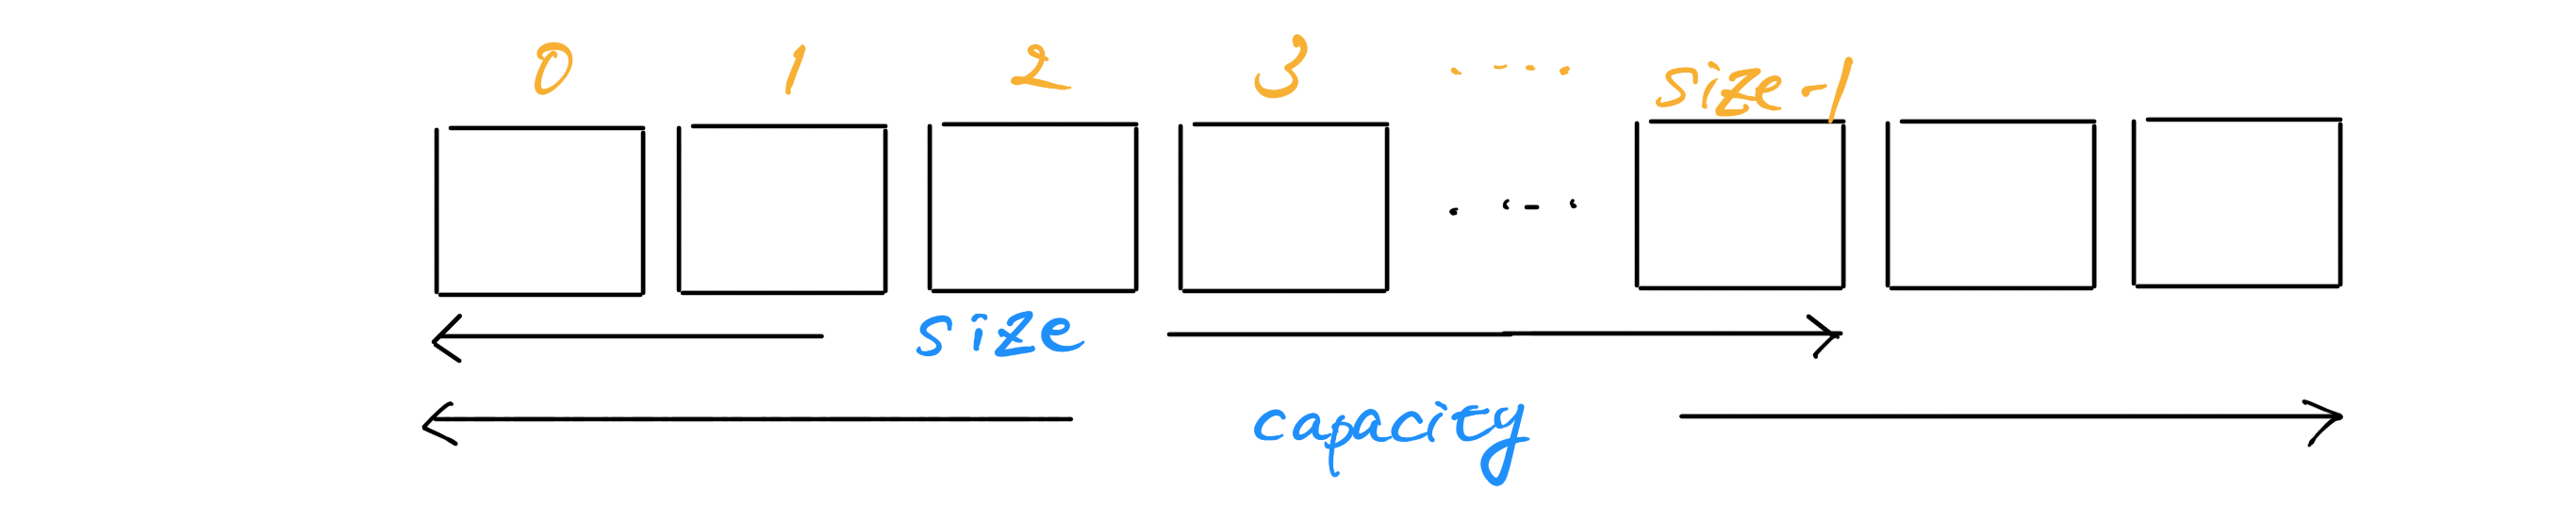 0 1 2 3 .... size-1
....
size
capacity